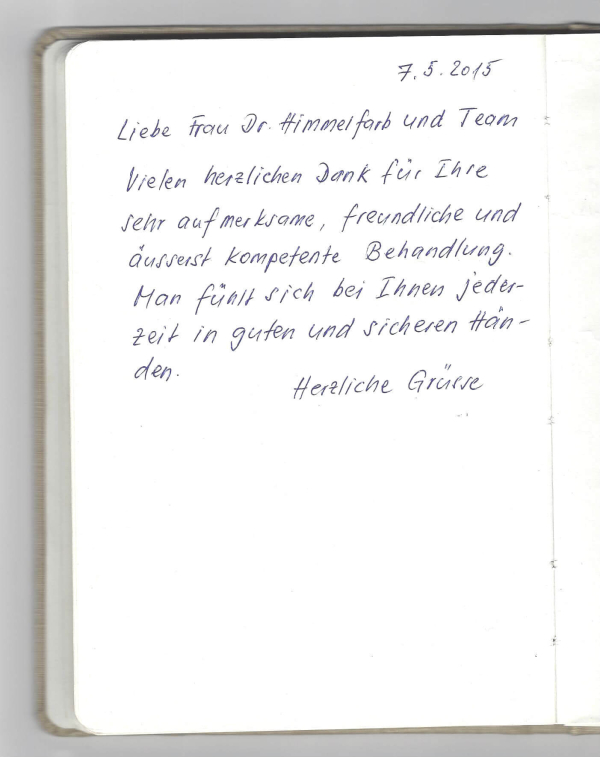 7.5.2015
Liebe Frau Dr. Himmelfarb und Team
Vielen herzlichen Dank für Ihre
sehr aufmerksame, freundliche und
äusserst kompetente Behandlung.
Man fühlt sich bei Ihnen jeder-
zeit in guten und sicheren Hän-
den.
Herzliche Grüsse